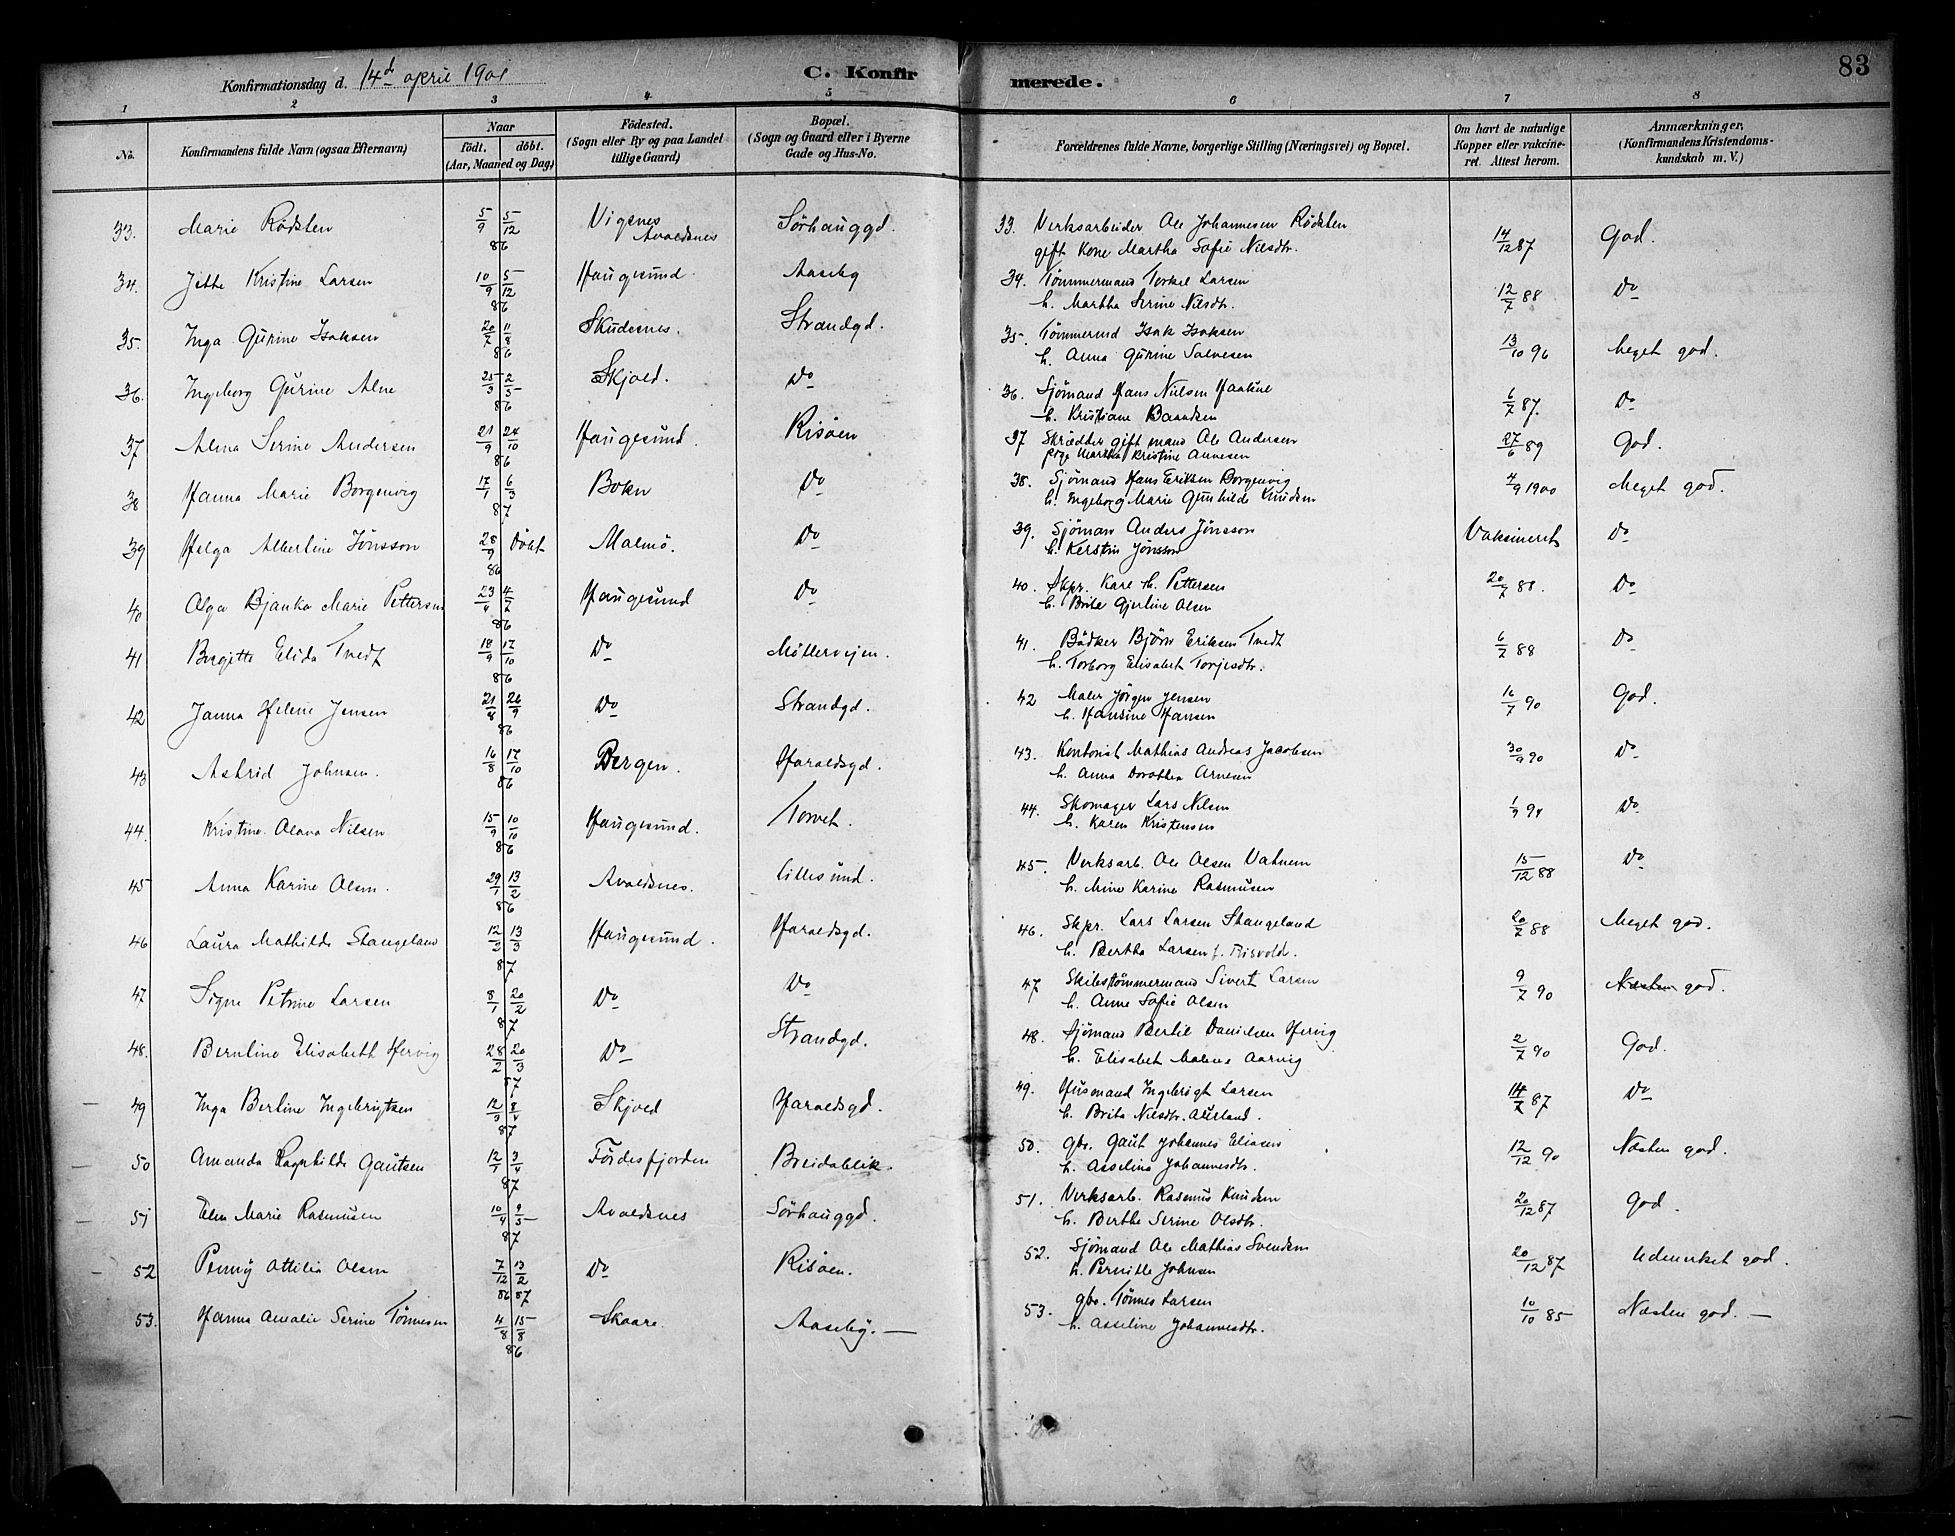 83
Konfirmationsdag d. 14d april 1901
C. Konfirmerede.
1 2 3 4 5 6 7 8
No.
Konfirmandens fulde Navn (ogsaa Efternavn)
Naar
födt. döbt.
(Aar, Maaned og Dag)
Födested.
(Sogn eller By og paa Landet
tillige Gaard)
Bopæl.
(Sogn og Gaard eller i Byerne
Gade og Hus-No.
Forældrenes fulde Navne, borgerlige Stilling (Næringsvei) og Bopæl.
Om havt de naturlige
Kopper eller vakcine-
ret. Attest herom.
Anmærkninger,
(Konfirmandens Kristendoms-
kundskab m. V.)
33. Marie Rødsten 5/9 5/12 86 Vigsnes Avaldsnes Sörhauggd. 33. Verksarbeider Ole Johannesen Rødsten 14/12 87 God.
gift Kone Martha Sofie Nilsdtr.
34. Jette Kristine Larsen 10/9 5/12 86 Haugesund. Aaseby 34. Tømmermand Torkel Larsen 12/7 88 Do
h. Martha Serine Nilsdtr.
35. Inga Gurine Isaksen 20/7 11/8 86 Skudesnes. Strandgd. 35. Tømmermd Isak Isaksen 13/10 96 Meget god.
h. Anna Gurine Salvesen
36. Ingeborg Gurine Alne 25/3 2/5 86 Skjold. Do 36. Sjömand Hans Nielsen 6/7 87. Do
h. Kristiane Baardsen
37 Alma Serine Andersen 21/9 24/10 86 Haugesund. Risöen 37 Skrædder gift mand Ole Andersen 27/6 89 God.
pige Martha Kristine Annesen
38 Hanna Marie Borgenvig 17/1 6/3 87 Bokn Do 38. Sjömand Hans Eriksen Borgenvig 4/9 1900 Meget god.
h. Ingeborg Marie Gunhilde Knudsen
39 Helga Albertine Jönsson 28/9 Döbt 86 Malmö. Do 39. Sjöman Anders Jönsson Vaksineret Do
h. Kerstin Jönsson
40 Olga Bjanka Marie Pettersen 23/4 4/7 86 Haugesund Do 40. Skpr. Karl M. Pettersen 20/7 88. Do
h. Brite Gjertine Olsen
41 Bergitte Elida Tvedt 18/9 17/10 86 Do Möllervejen. 41. Bödker Björn Eriksen Tvedt 6/7 88 Do
h. Torborg Elisabet Torjesdtr.
42 Janna Helene Jensen 21/8 26/9 86 Do Strandgd. 42 Maler Jörgen Jensen 16/7 90 God.
h. Hansine Hansen
43 Astrid Johnsen. 16/8 17/10 86 Bergen. Haraldsgd. 43. Kontorist Mathias Andreas Jacobsen 30/9 90 Do
h. Anna Dorothea Arnesen
44. Kristine Olava Nilsen 15/9 10/10 86 Haugesund. Torvet. 44. Skomager Lars Nilsen Do
h. Karen Kristensen
45 Anna Karine Olsen. 29/1 13/2 86 Avaldsnes. Lillesund. 45. Verksarb. Ole Olsen Vatnem 15/12 88 Do
h. Mine Karine Rasmusen
46 Laura Mathilde Stangeland 12/3 13/3 87 Haugesund. Haraldsgd. 46. Skpr. Lars Larsen Stangeland 20/7 88 Meget god.
h. Bertha Larsen f. Risvold.
47 Signe Petrine Larsen 8/1 20/2 87 Do Do 47 Skibstømmermand Sivert Larsen 9/7 90 Næsten god.
h. Anne Sofie Olsen
48. Berntine Elisabeth Hervig 28/2 20/3 87 Do Strandgd. 48. Sjömand Bertil Danielsen Hervig 2/7 90 God.
h. Elisabet Malene Aarvig
49 Inga Bertine Ingebrigtsen 12/3 87 Skjold Haraldsgd. 49. Husmand Ingebrigt Larsen 14/7 87 Do
h. Brita Nilsdtr. Aurland.
50 Amanda Ragnhilde Gautsen 12/1 3/4 87 Fördesfjorden Breidablik. 50. gbr. Gaut Johannes Eliasen 12/12 90 Næsten god.
h. Asseline Johannesdtr.
51 Elen Marie Rasmusen 10/4 9/5 87 Avaldsnes Sörhauggd. 51. Verksarb. Rasmus Knudsen 20/12 87 God.
h. Berthe Serine Olsdtr.
52 Penny Ottilia Olsen 7/12 86 13/2 87 Do Risöen. 52. Sjömand Ole Mathias Svendsen 20/12 87 Udmerket god.
h. Pernille Johnsen
53. Hanna Amalie Serine Tönnesen 4/8 15/8 86 Skaare. Aaseby. — 53. gbr. Tönnes Larsen 10/10 85 Næsten god. —
h. Asseline Johannesdtr.